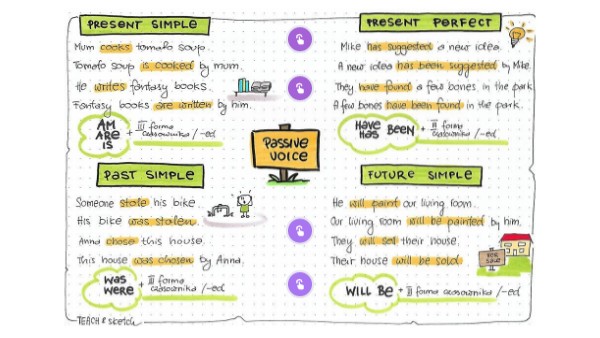 PRESENT SIMPLE
Mum cooks tomato soup.
Tomato soup is cooked by mum.
He writes fantasy books.
Fantasy books are written by him.
AM
ARE
IS
+ III forma
czasownika /-ed
PRESENT PERFECT
Mike has suggested a new idea.
A new idea has been suggested by Mike.
They have found a few bones in the park.
A few bones have been found in the park.
HAVE
HAS
BEEN
+ III forma
czasownika /-ed
PASSIVE
VOICE
PAST SIMPLE
Someone stole his bike.
His bike was stolen.
Anna chose this house.
This house was chosen by Anna.
WAS
WERE
+ III forma
czasownika /-ed
FUTURE SIMPLE
He will paint our living room.
Our living room will be painted by him.
They will sell their house.
Their house will be sold.
FOR
SALE
WILL BE
+ III forma czasownika /-ed
TEACH & sketch